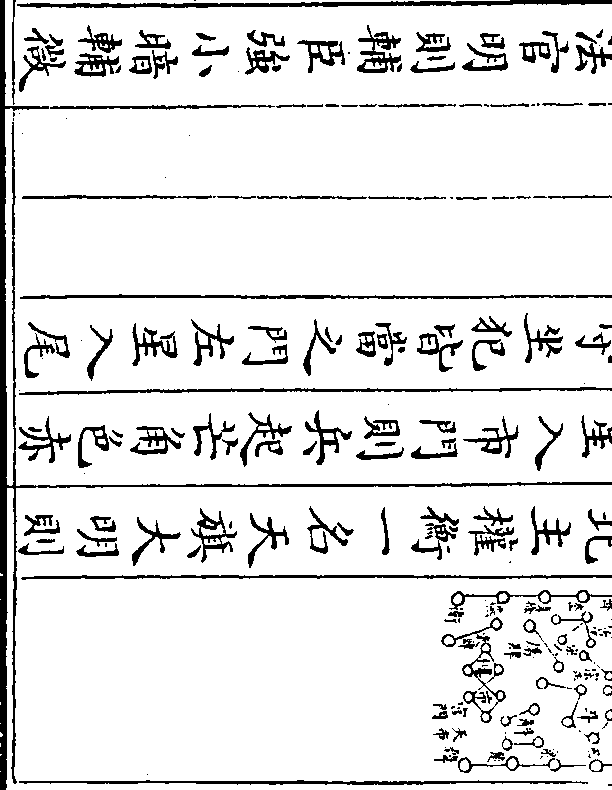 北主權衡一名天旗大明則
星入市門則兵起芒角色赤
守坐犯皆當之門左星入尾
法官明則輔臣強小暗輔微